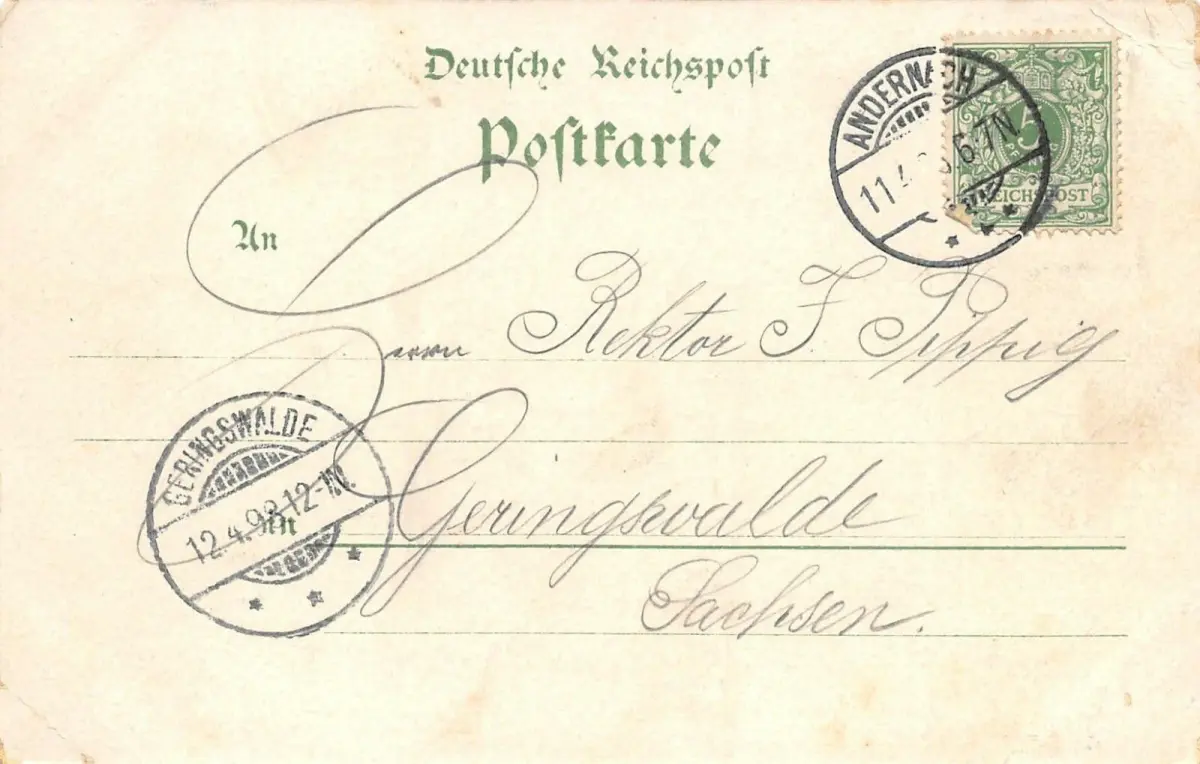 Deutsche Reichspost
Postkarte
ANDERNACH
11.4. 6-7N
5
REICHSPOST
An
Herrn Rektor F. Pippig
GERINGSWALDE
12.4.98.12-1N.
in Geringswalde
Sachsen.